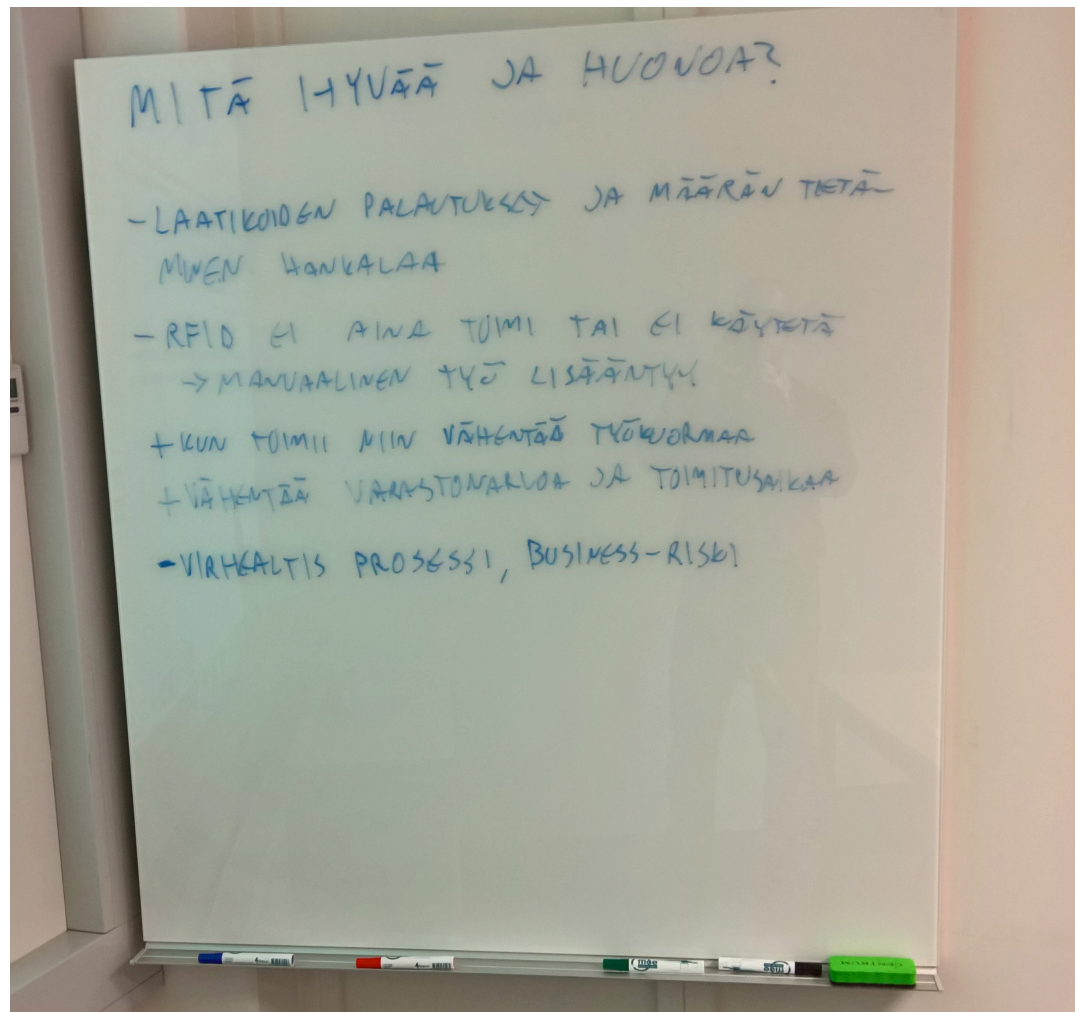 MITÄ HYVÄÄ JA HUONOA?
- LAATIKOIDEN PALAUTUKSET JA MÄÄRÄN TIETÄ-
MINEN HANKALAA
- RFID EI AINA TOIMI TAI EI KÄYTETÄ
→ MANUAALINEN TYÖ LISÄÄNTYY
+ KUN TOIMII NIIN VÄHENTÄÄ TYÖKUORMAA
+ VÄHENTÄÄ VARASTONARVOA JA TOIMITUSAIKAA
- VIRHEALTIS PROSESSI, BUSINESS-RISKI
CENTRUM